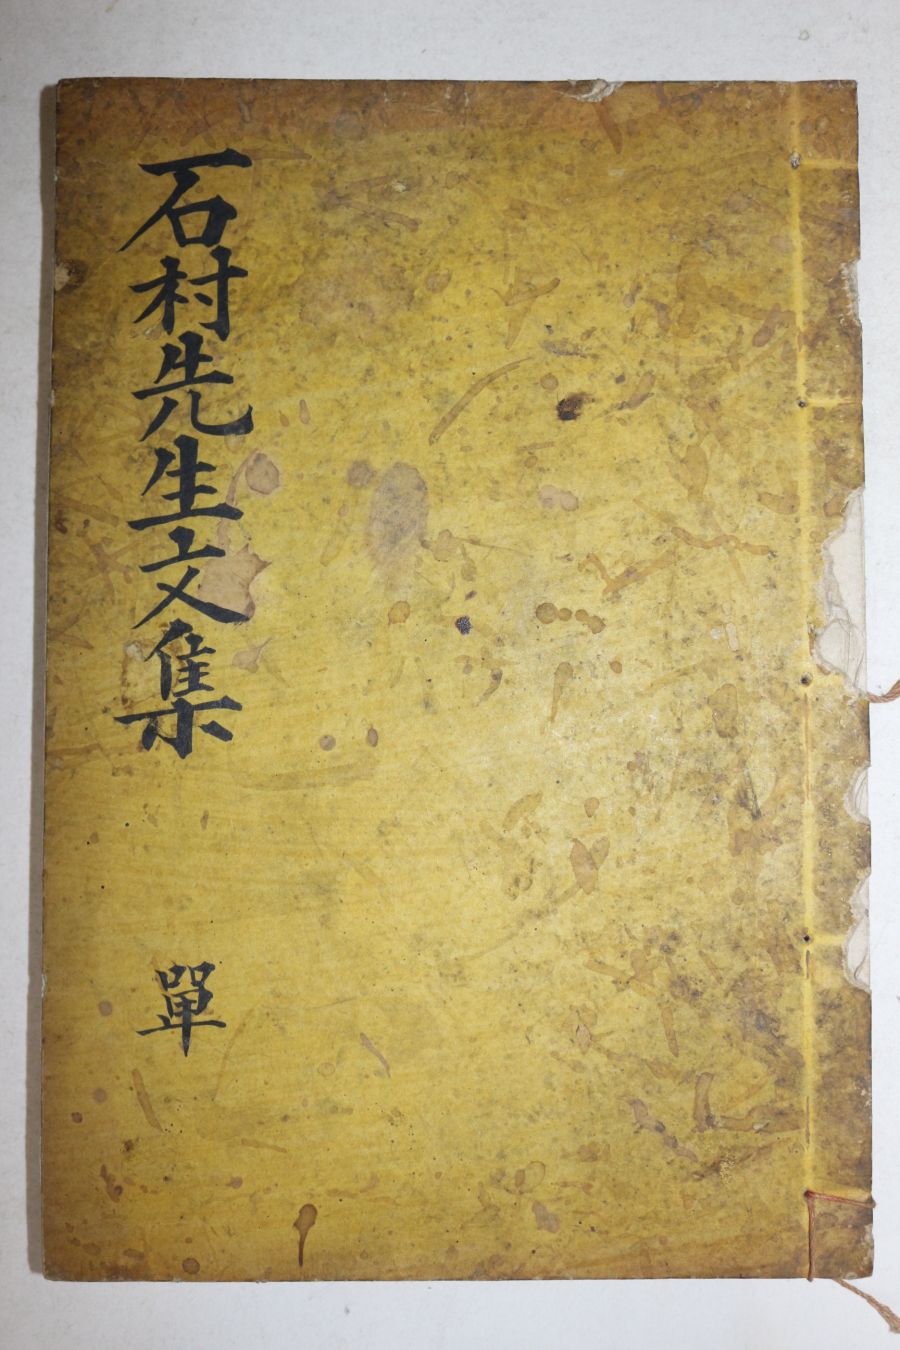 石村先生文集
單